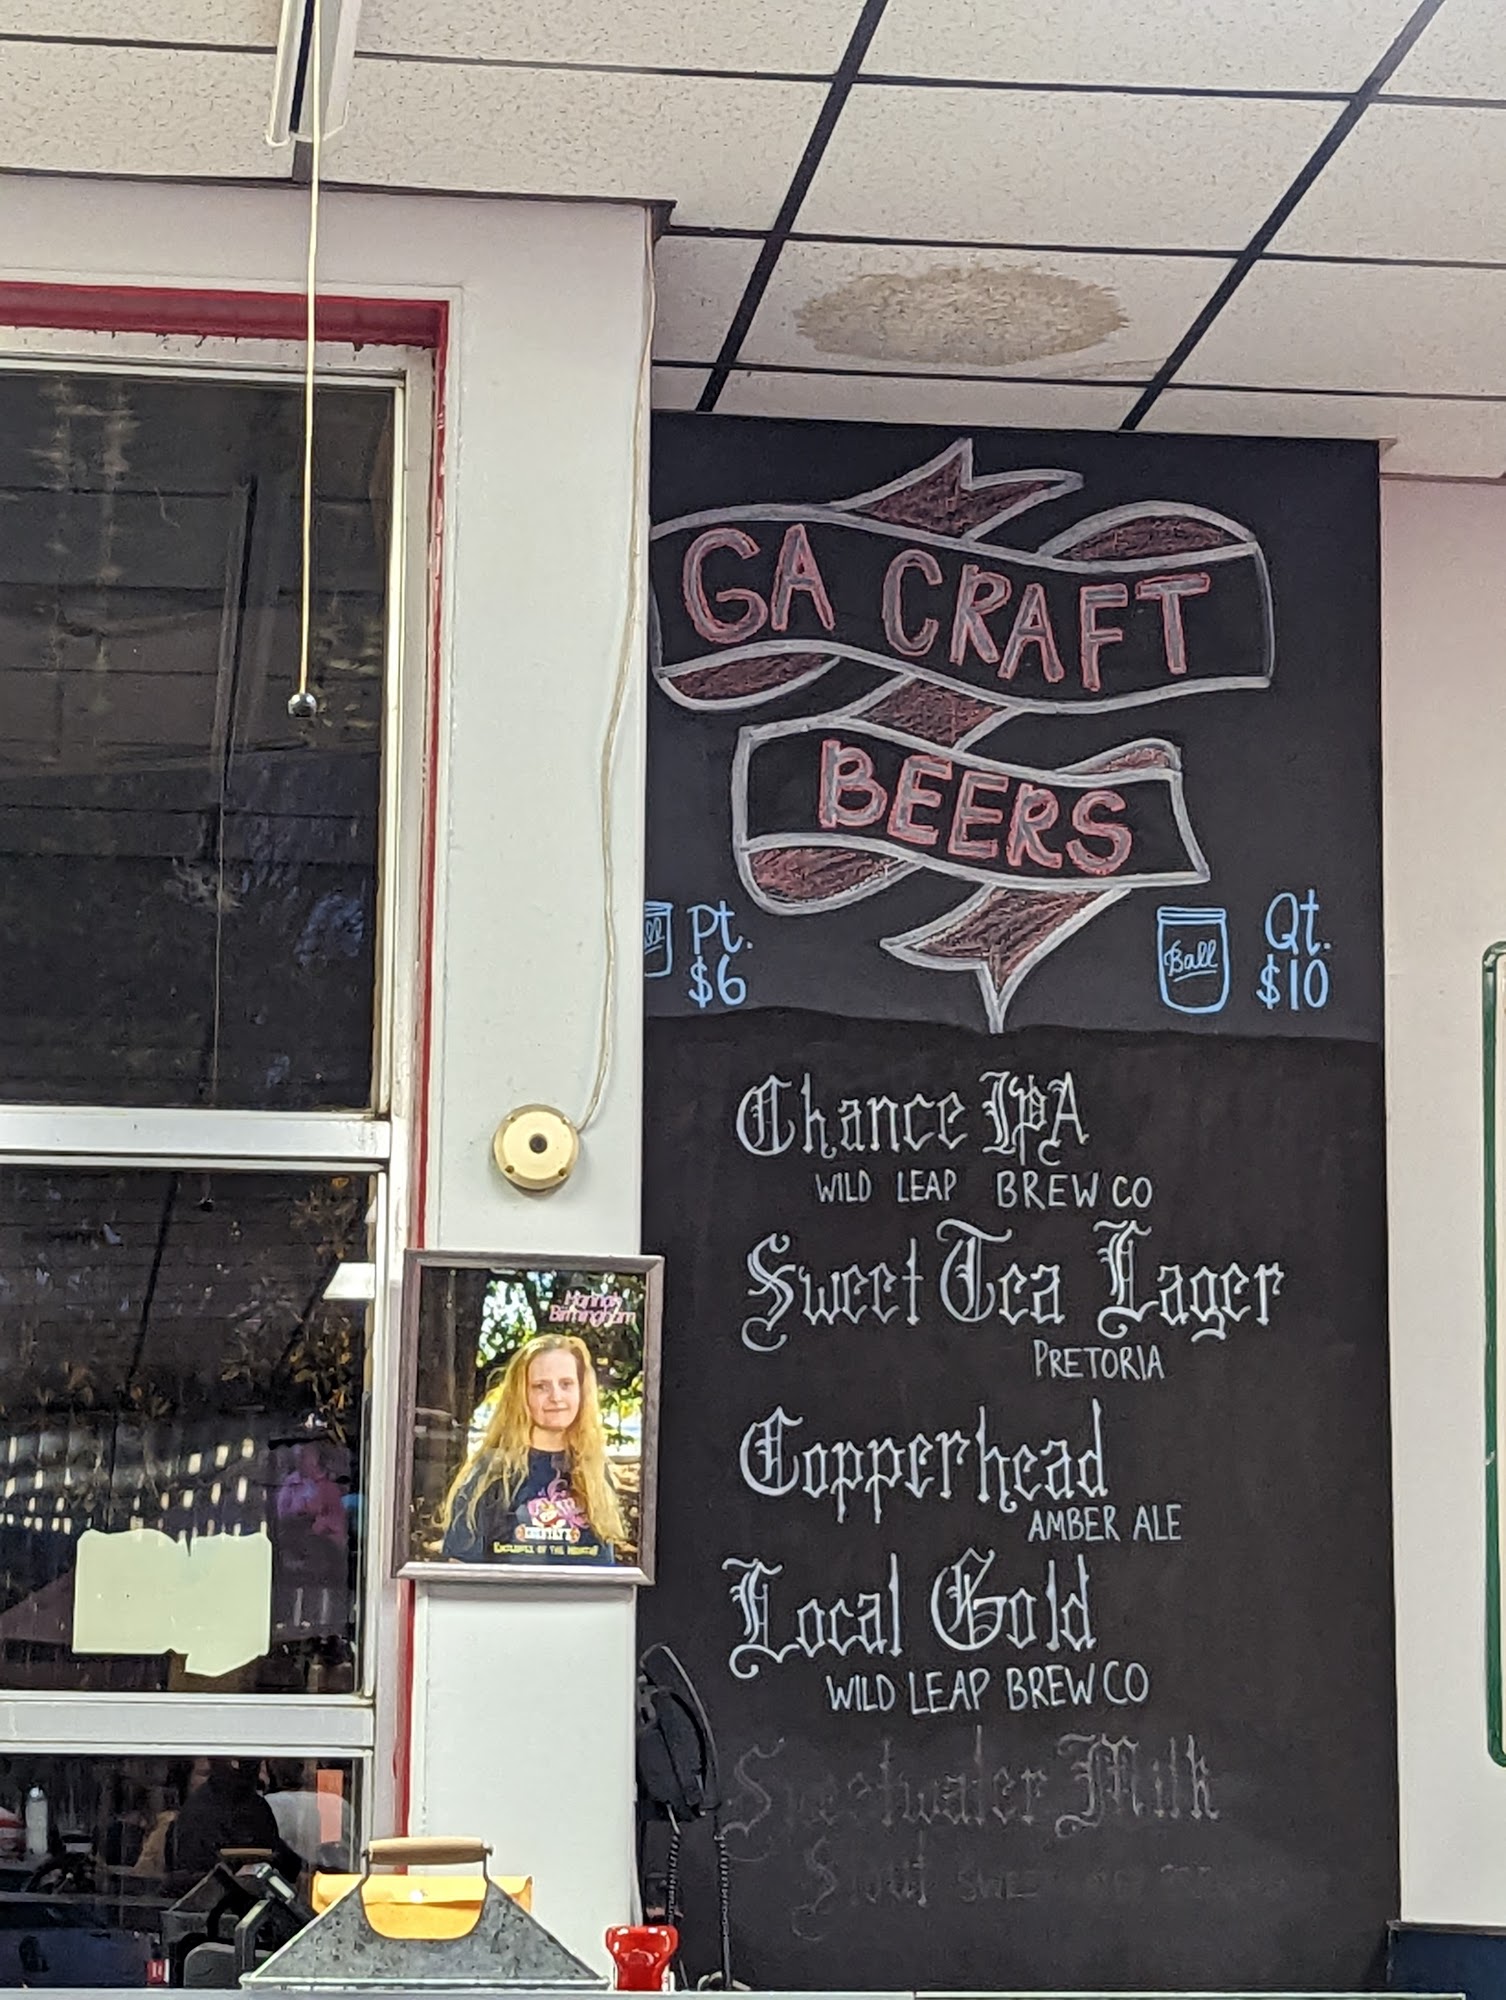 GA CRAFT
BEERS
Pt.
$6
Ball
Qt.
$10
Chance IPA
WILD LEAP BREW CO
Sweet Tea Lager
PRETORIA
Copperhead
AMBER ALE
Local Gold
WILD LEAP BREW CO
Sweetwater Milk
Stout
Hannah
Birmingham
EMPLOYEE OF THE MONTH